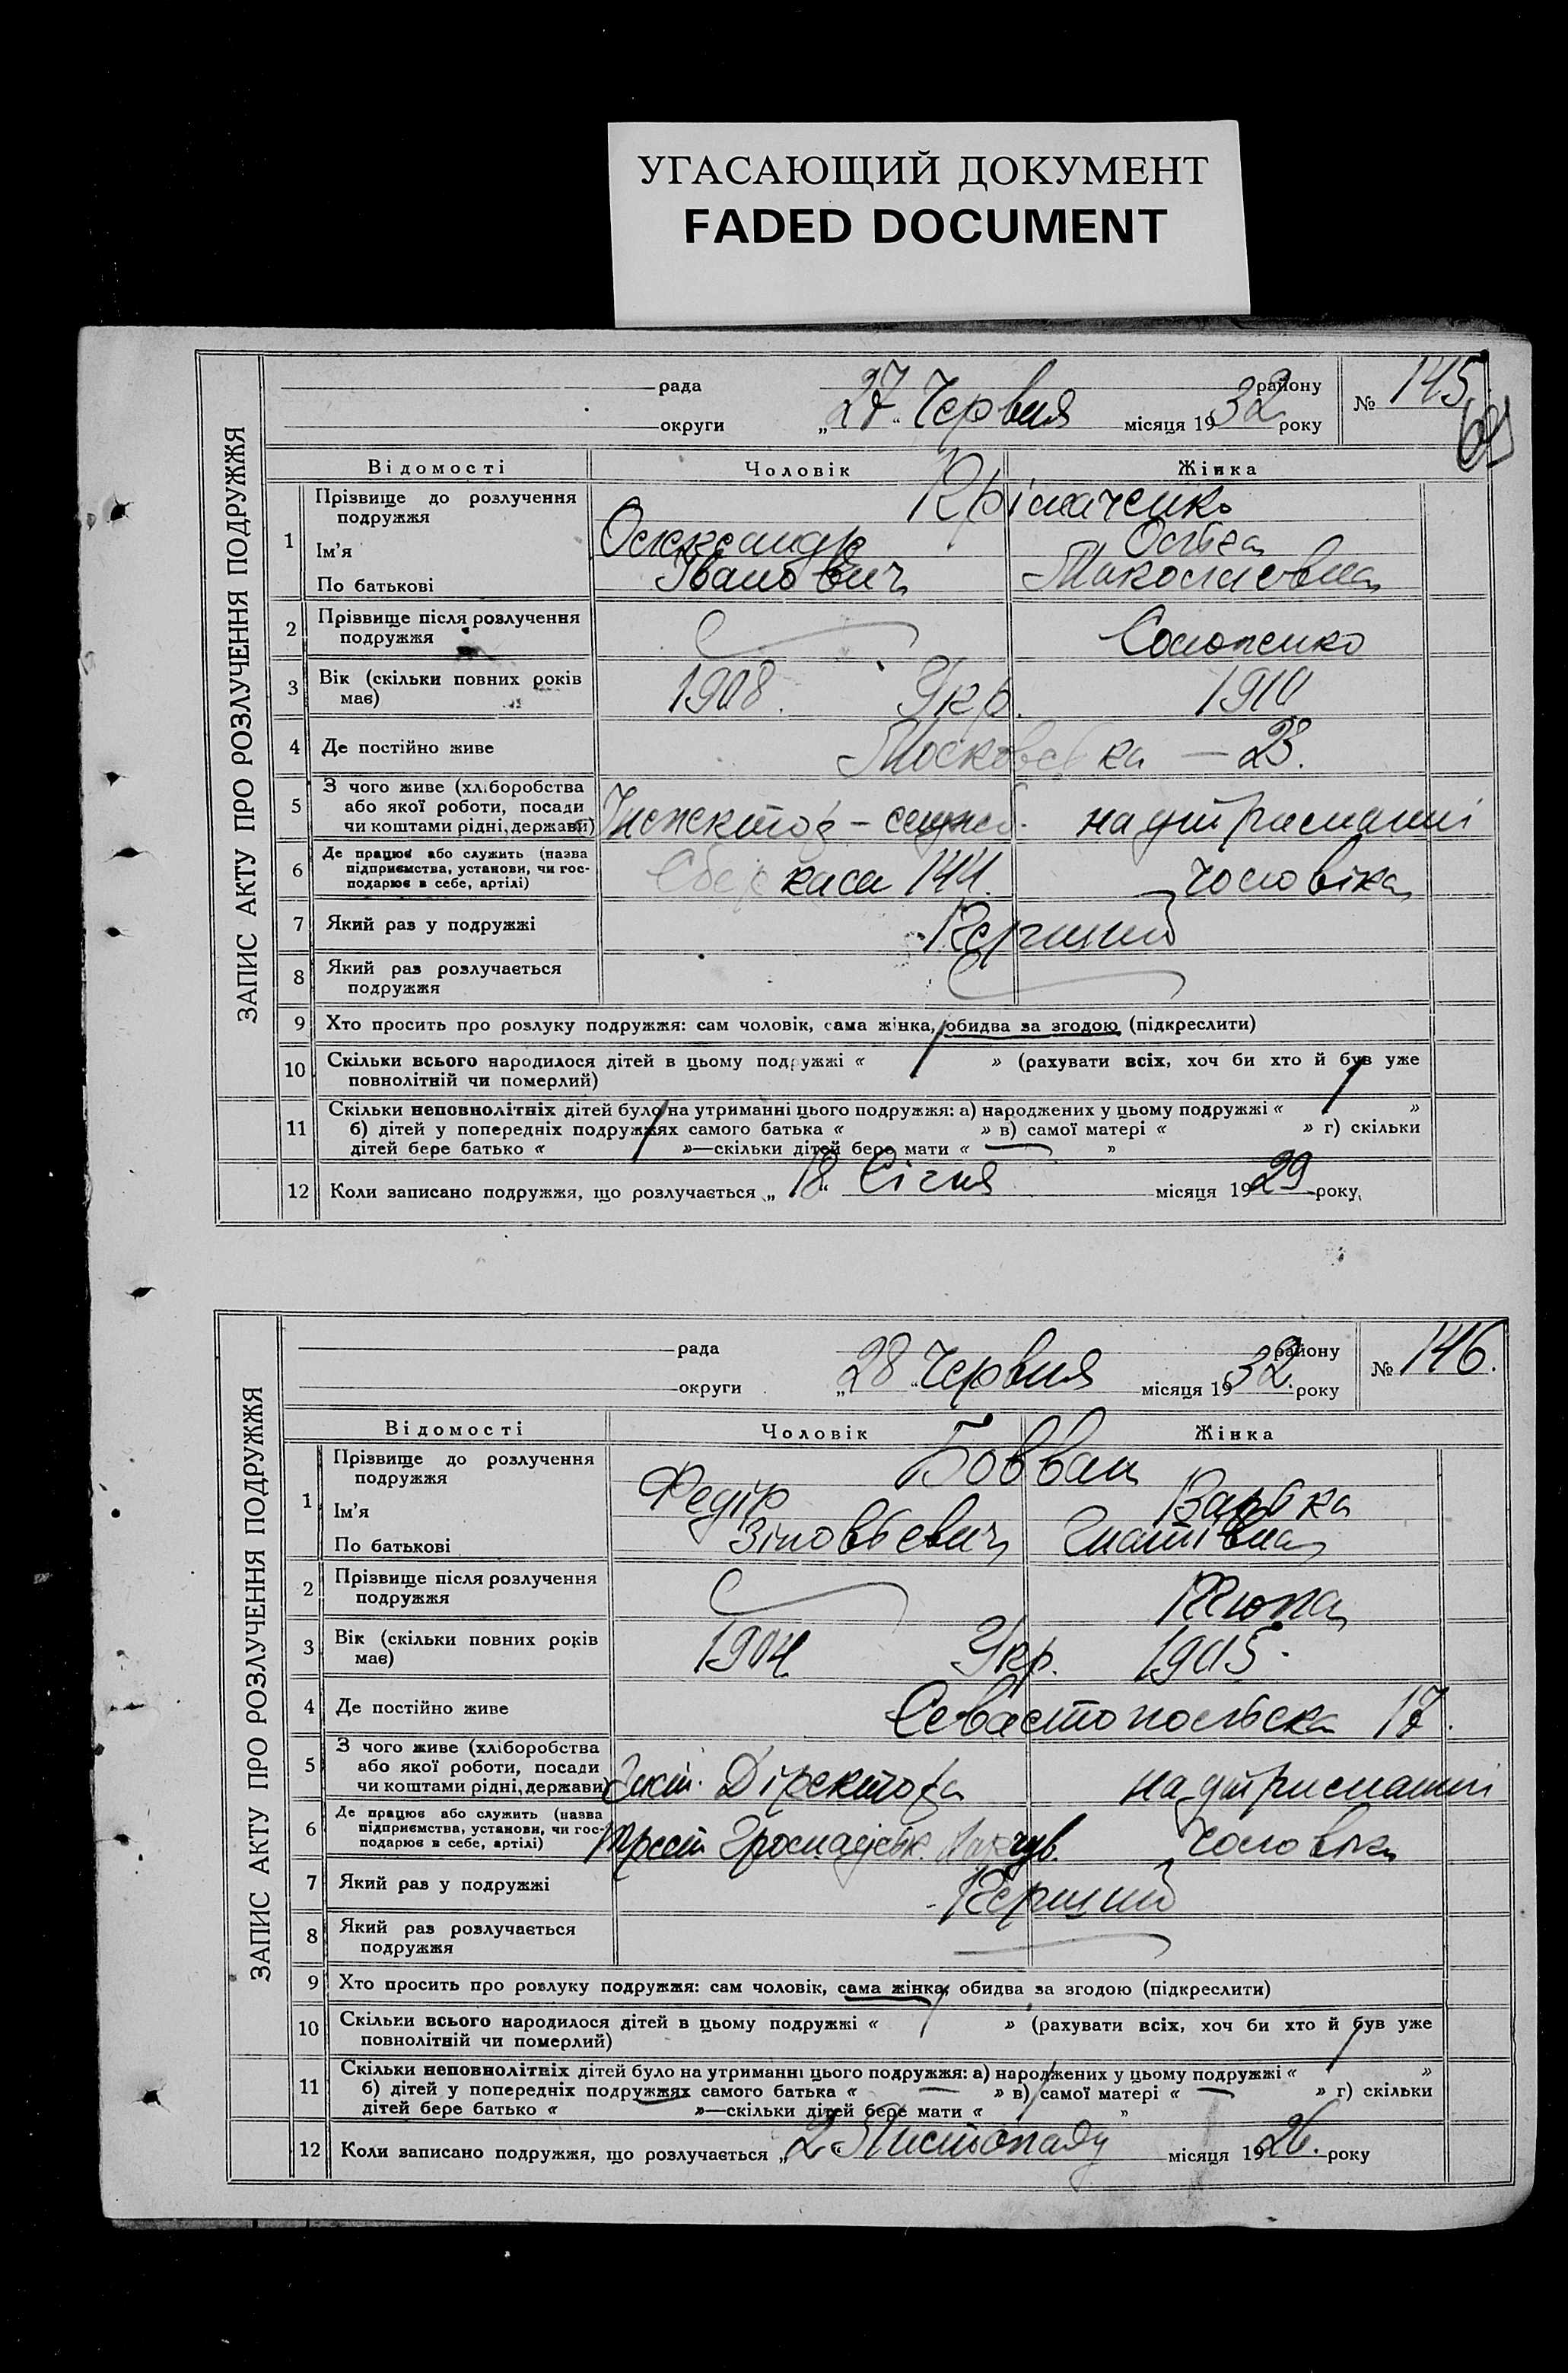 УГАСАЮЩИЙ ДОКУМЕНТ
FADED DOCUMENT
ЗАПИС АКТУ ПРО РОЗЛУЧЕННЯ ПОДРУЖЖЯ
рада району
округи „27“ Червня місяця 1932 року
№ 145.
69
Відомості Чоловік Жінка
1 Прізвище до розлучення подружжя
Ім'я Олександр Ольга
По батькові Іванович Миколаєвна
2 Прізвище після розлучення
подружжя
3 Вік (скільки повних років 1908. Укр. 1910
має)
4 Де постійно живе Московська — 23.
5 З чого живе (хліборобства
або якої роботи, посади Інспектор – службов. на утриманні
чи коштами рідні, держави)
6 Де працює або служить (назва
підприємства, установи, чи гос- Сбер каса 144. чоловіка
подарює в себе, артілі)
7 Який раз у подружжі Перший
8 Який раз розлучається
подружжя
9 Хто просить про розлуку подружжя: сам чоловік, сама жінка, обидва за згодою (підкреслити)
10 Скільки всього народилося дітей в цьому подружжі « » (рахувати всіх, хоч би хто й був уже
повнолітній чи померлий)
11 Скільки неповнолітніх дітей було на утриманні цього подружжя: а) народжених у цьому подружжі « »
б) дітей у попередніх подружжях самого батька « » в) самої матері « » г) скільки
дітей бере батько « »—скільки дітей бере мати « — »
12 Коли записано подружжя, що розлучається „18“ Січня місяця 1929 року
ЗАПИС АКТУ ПРО РОЗЛУЧЕННЯ ПОДРУЖЖЯ
рада району
округи „28“ Червня місяця 1932. року
№ 146.
Відомості Чоловік Жінка
1 Прізвище до розлучення Бовван
подружжя
Ім'я Федір Варька
По батькові Зіновьевич Гнатівна
2 Прізвище після розлучення
подружжя Клюпа
3 Вік (скільки повних років 1904 Укр. 1905.
має)
4 Де постійно живе Севастопольська 17.
5 З чого живе (хліборобства
або якої роботи, посади Заст. Діректора на утриманні
чи коштами рідні, держави)
6 Де працює або служить (назва
підприємства, установи, чи гос- Трест Громадськ. Харчув. чоловіка
подарює в себе, артілі)
7 Який раз у подружжі Перший
8 Який раз розлучається
подружжя
9 Хто просить про розлуку подружжя: сам чоловік, сама жінка, обидва за згодою (підкреслити)
10 Скільки всього народилося дітей в цьому подружжі « » (рахувати всіх, хоч би хто й був уже
повнолітній чи померлий)
11 Скільки неповнолітніх дітей було на утриманні цього подружжя: а) народжених у цьому подружжі « »
б) дітей у попередніх подружжях самого батька « — » в) самої матері « — » г) скільки
дітей бере батько « »—скільки дітей бере мати « »
12 Коли записано подружжя, що розлучається „2“ Листопаду місяця 1926. року